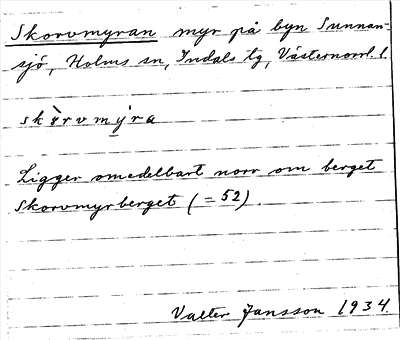 Skorvmyran myr på byn Sunnan-
sjö, Holms sn, Indals tg, Västernorrl. l.
Ligger omedelbart norr om berget
Skorvmyrberget (= 52).
Valter Jansson 1934.